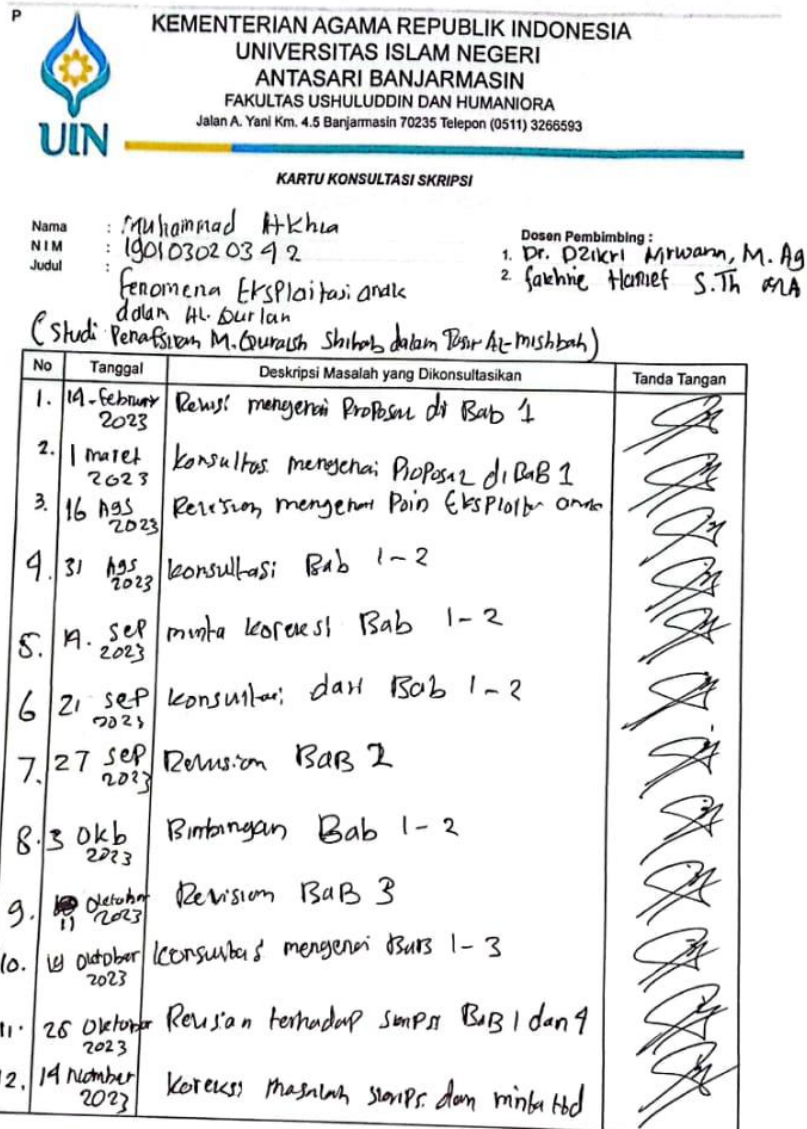 P
KEMENTERIAN AGAMA REPUBLIK INDONESIA
UNIVERSITAS ISLAM NEGERI
ANTASARI BANJARMASIN
FAKULTAS USHULUDDIN DAN HUMANIORA
Jalan A. Yani Km. 4.5 Banjarmasin 70235 Telepon (0511) 3266593
UIN
KARTU KONSULTASI SKRIPSI
Nama : Muhammad
NIM : 190103020342
Judul :
Fenomena Eksploitasi anak
dalam Al-Qur'an
(Studi Penafsiran M. Quraish Shihab dalam Tafsir Al-Mishbah)
Dosen Pembimbing :
1. Dr. Dzikri Nirwana, M. Ag
2. Fakhrie Hanief S.Th MA
No Tanggal Deskripsi Masalah yang Dikonsultasikan Tanda Tangan
1. 14 - Februar 2023 Revisi mengenai Proposal di Bab 1
2. 1 maret 2023 Konsultas mengenai Proposal di BaB 1
3. 16 Ags 2023 mengenai Poin anak
4. 31 Ags 2023 konsultasi Bab 1-2
5. 14. Sep 2023 minta koreksi Bab 1-2
6 21 Sep 2023 konsultasi dari Bab 1-2
7. 27 Sep 2023 BaB 2
8. 3 Okb 2023 Bimbingan Bab 1-2
9. 11 Oktober 2023 Revision BaB 3
10. 19 Oktober 2023 mengenai BaB 1-3
11. 26 Oktober 2023 terhadap BaB 1 dan 4
12. 14 2023 masalah dan minta ttd